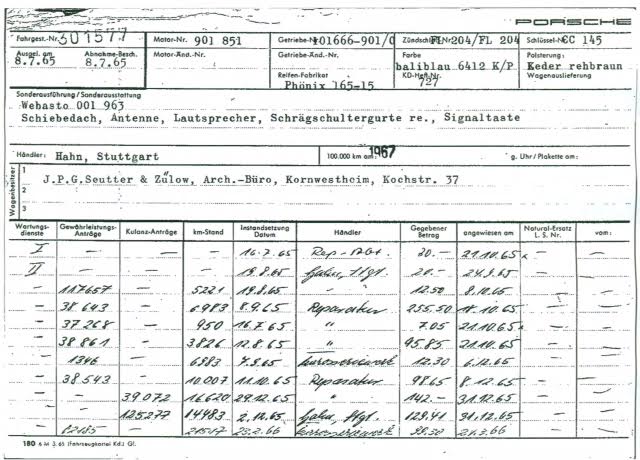 PORSCHE
Fahrgest.-Nr. 301577 Motor-Nr. 901 851 Getriebe-Nr. 101666-901/0 Zündschl.-Nr. FL 204/FL 204 Schlüssel-Nr. CC 145
Ausgel. am 8.7.65 Abnahme-Besch. 8.7.65 Motor-Änd.-Nr. Getriebe-Änd.-Nr. Farbe baliblau 6412 K/P Polsterung: Keder rehbraun
Reifen-Fabrikat Phönix 165-15 KD-Heft-Nr. 727 Wagenauslieferung
Sonderausführung / Sonderausstattung
Webasto 001 963
Schiebedach, Antenne, Lautsprecher, Schrägschultergurte re., Signaltaste
Händler: Hahn, Stuttgart 100.000 km am: 1967 g. Uhr / Plakette am:
Wagenbesitzer
1
J.P.G.Seutter & Zülow, Arch.-Büro, Kornwestheim, Kochstr. 37
2
3
Wartungsdienste Gewährleistungs-Anträge Kulanz-Anträge km-Stand Instandsetzung Datum Händler Gegebener Betrag angewiesen am Natural-Ersatz L. S. Nr. vom:
I – – – 16.7.65 Rep.-Abt. 20.– 21.10.65 – –
II – – – 19.8.65 Hahn, Stgt. 20.– 24.9.65 – –
– 117657 – 5221 19.8.65 " 12.50 8.10.65 – –
– 38 643 – 6983 8.9.65 Reparatur 255.50 18.10.65 – –
– 37 268 – 950 16.7.65 " 7.05 21.10.65 – –
– 38 861 – 3826 12.8.65 " 95.85 21.10.65 – –
– 1346 – 6983 7.9.65 Karosseriewerk 12.30 6.12.65 – –
– 38 543 – 10.007 11.10.65 Reparatur 98.65 8.12.65 – –
– – 39 072 16620 29.12.65 " 142.– 31.12.65 – –
– – 125277 14483 2.12.65 Hahn, Stgt. 129.41 31.12.65 – –
– – 23.2.66 Karosseriewerk 21.3.66 – –
180 6 M 3.65 (Fahrzeugkartei Kd.) Gl.